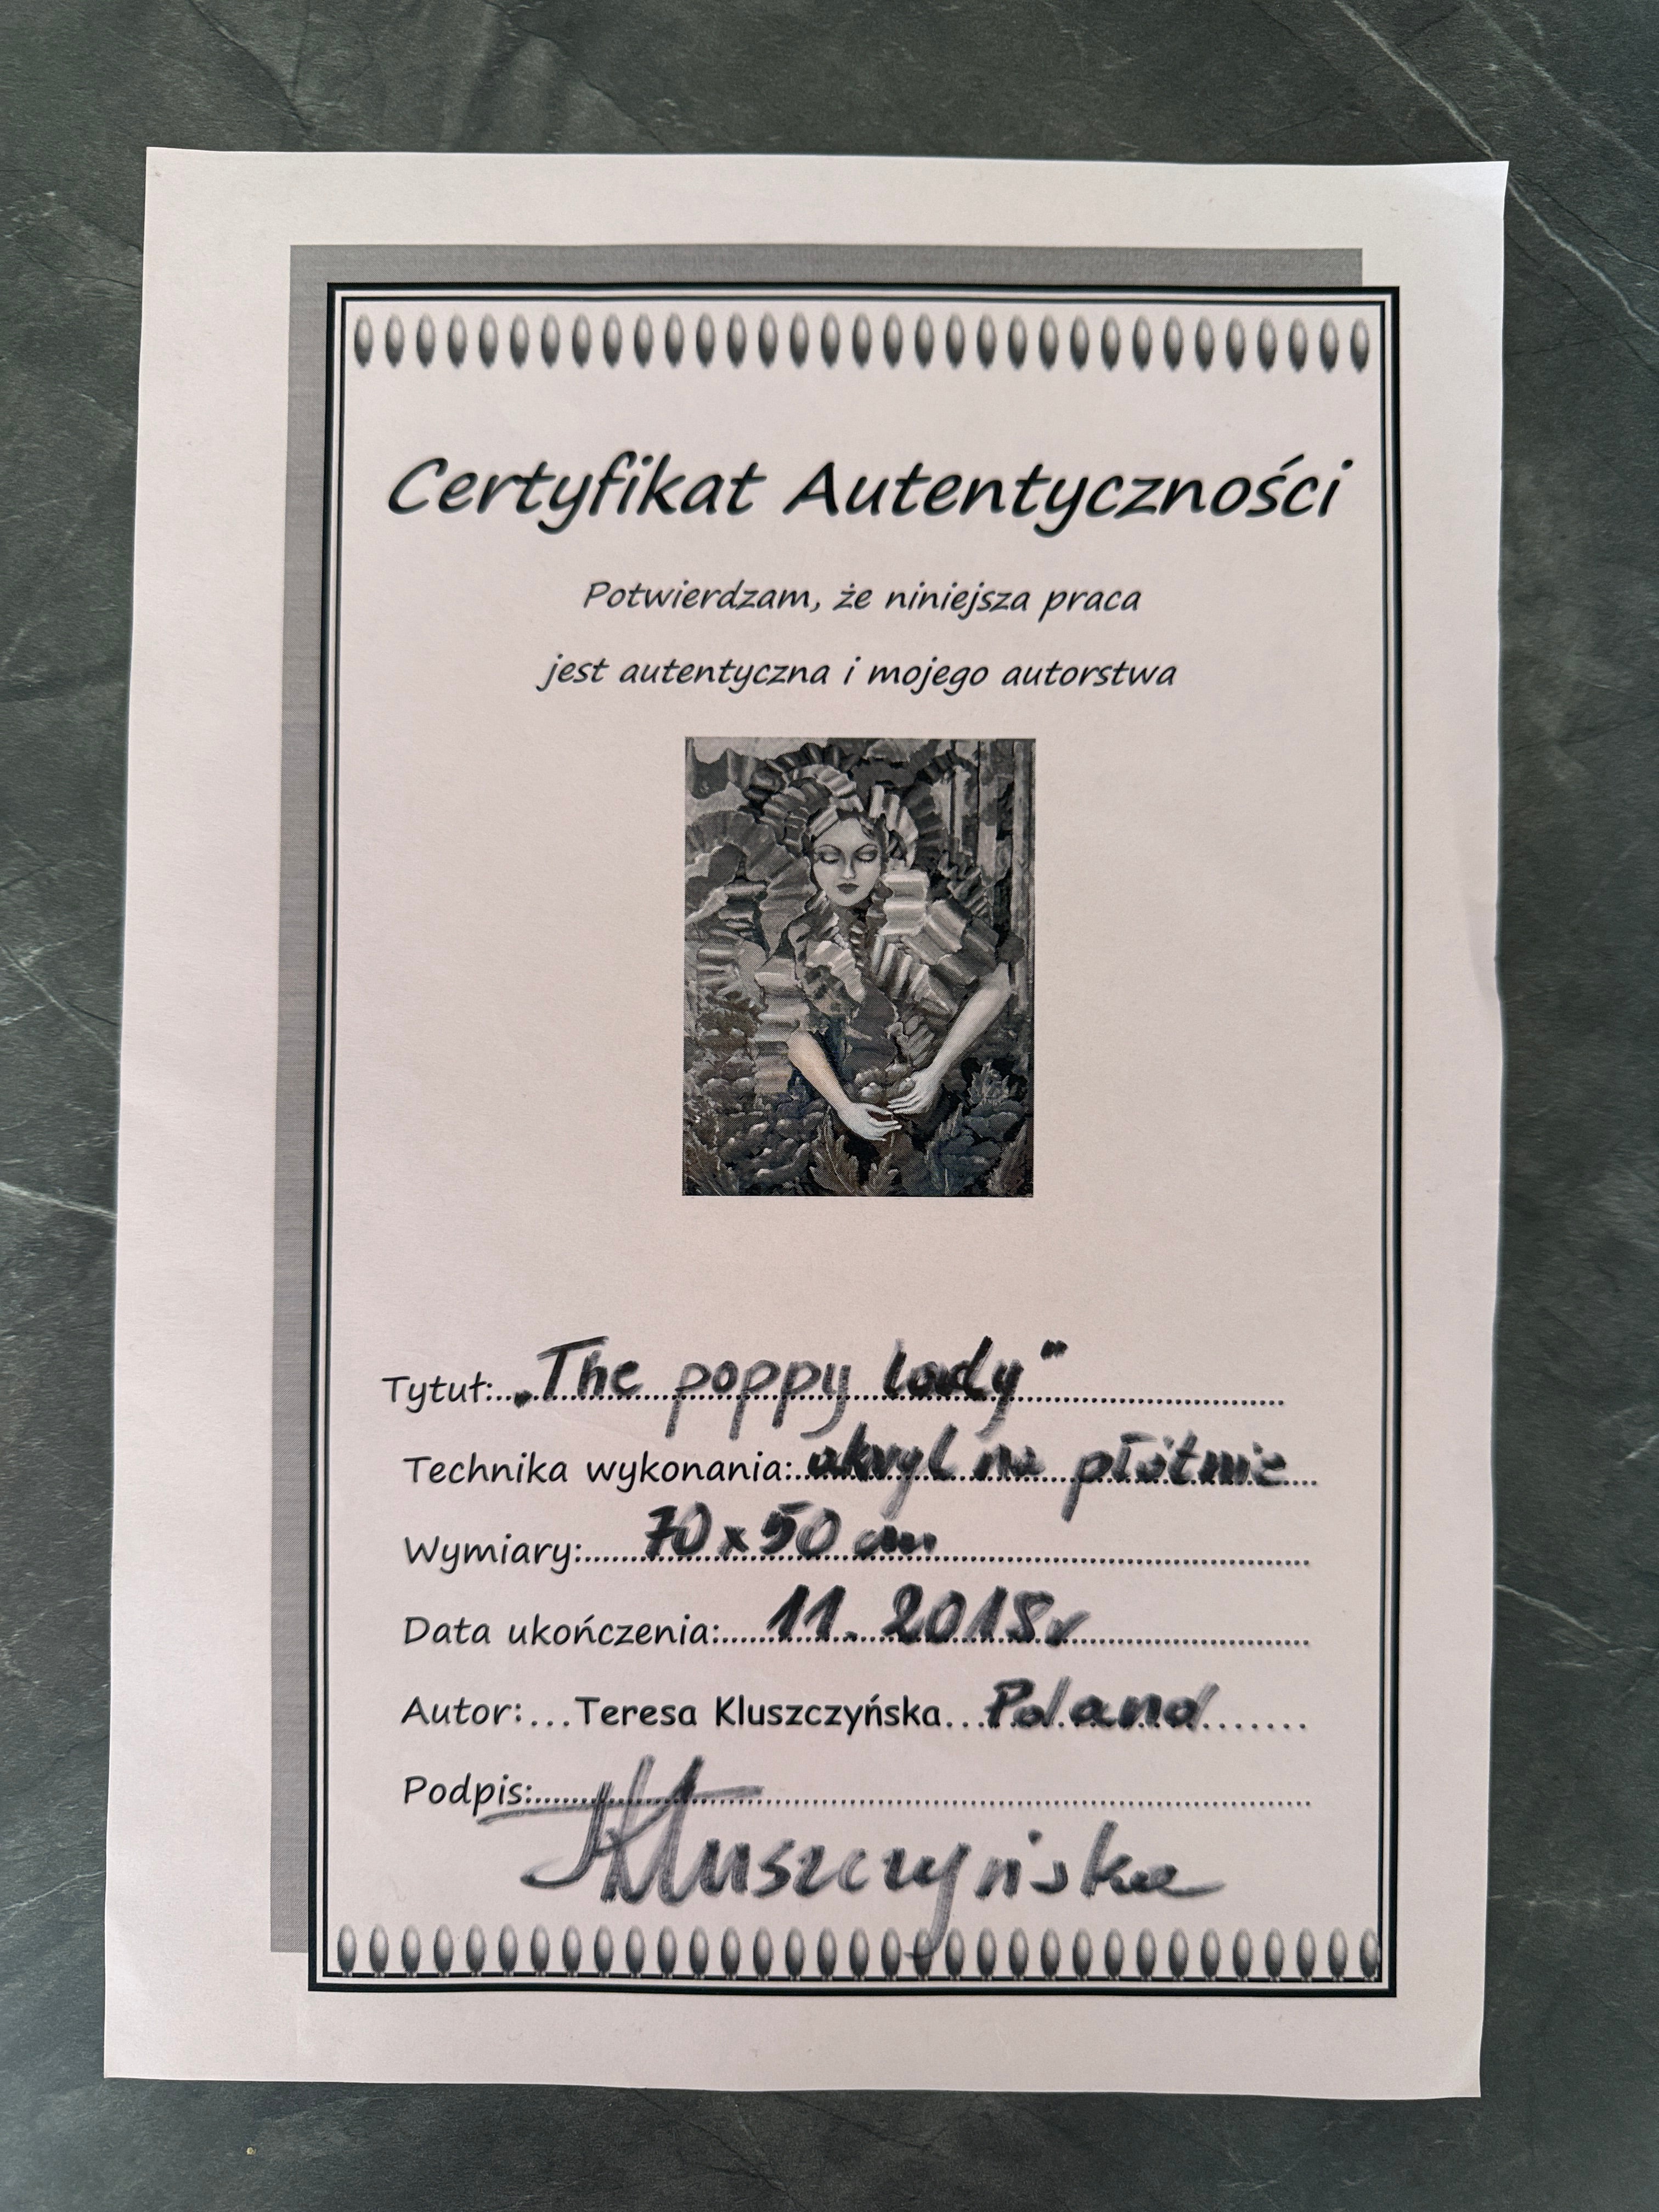 Certyfikat Autentyczności
Potwierdzam, że niniejsza praca
jest autentyczna i mojego autorstwa
Tytuł:..„The poppy lady”....................
Technika wykonania:..akryl na płótnie...
Wymiary:......70 x 50 cm....................
Data ukończenia:....11. 2018r..................
Autor:...Teresa Kluszczyńska...Poland.......
Podpis:..............................
TKluszczyńska